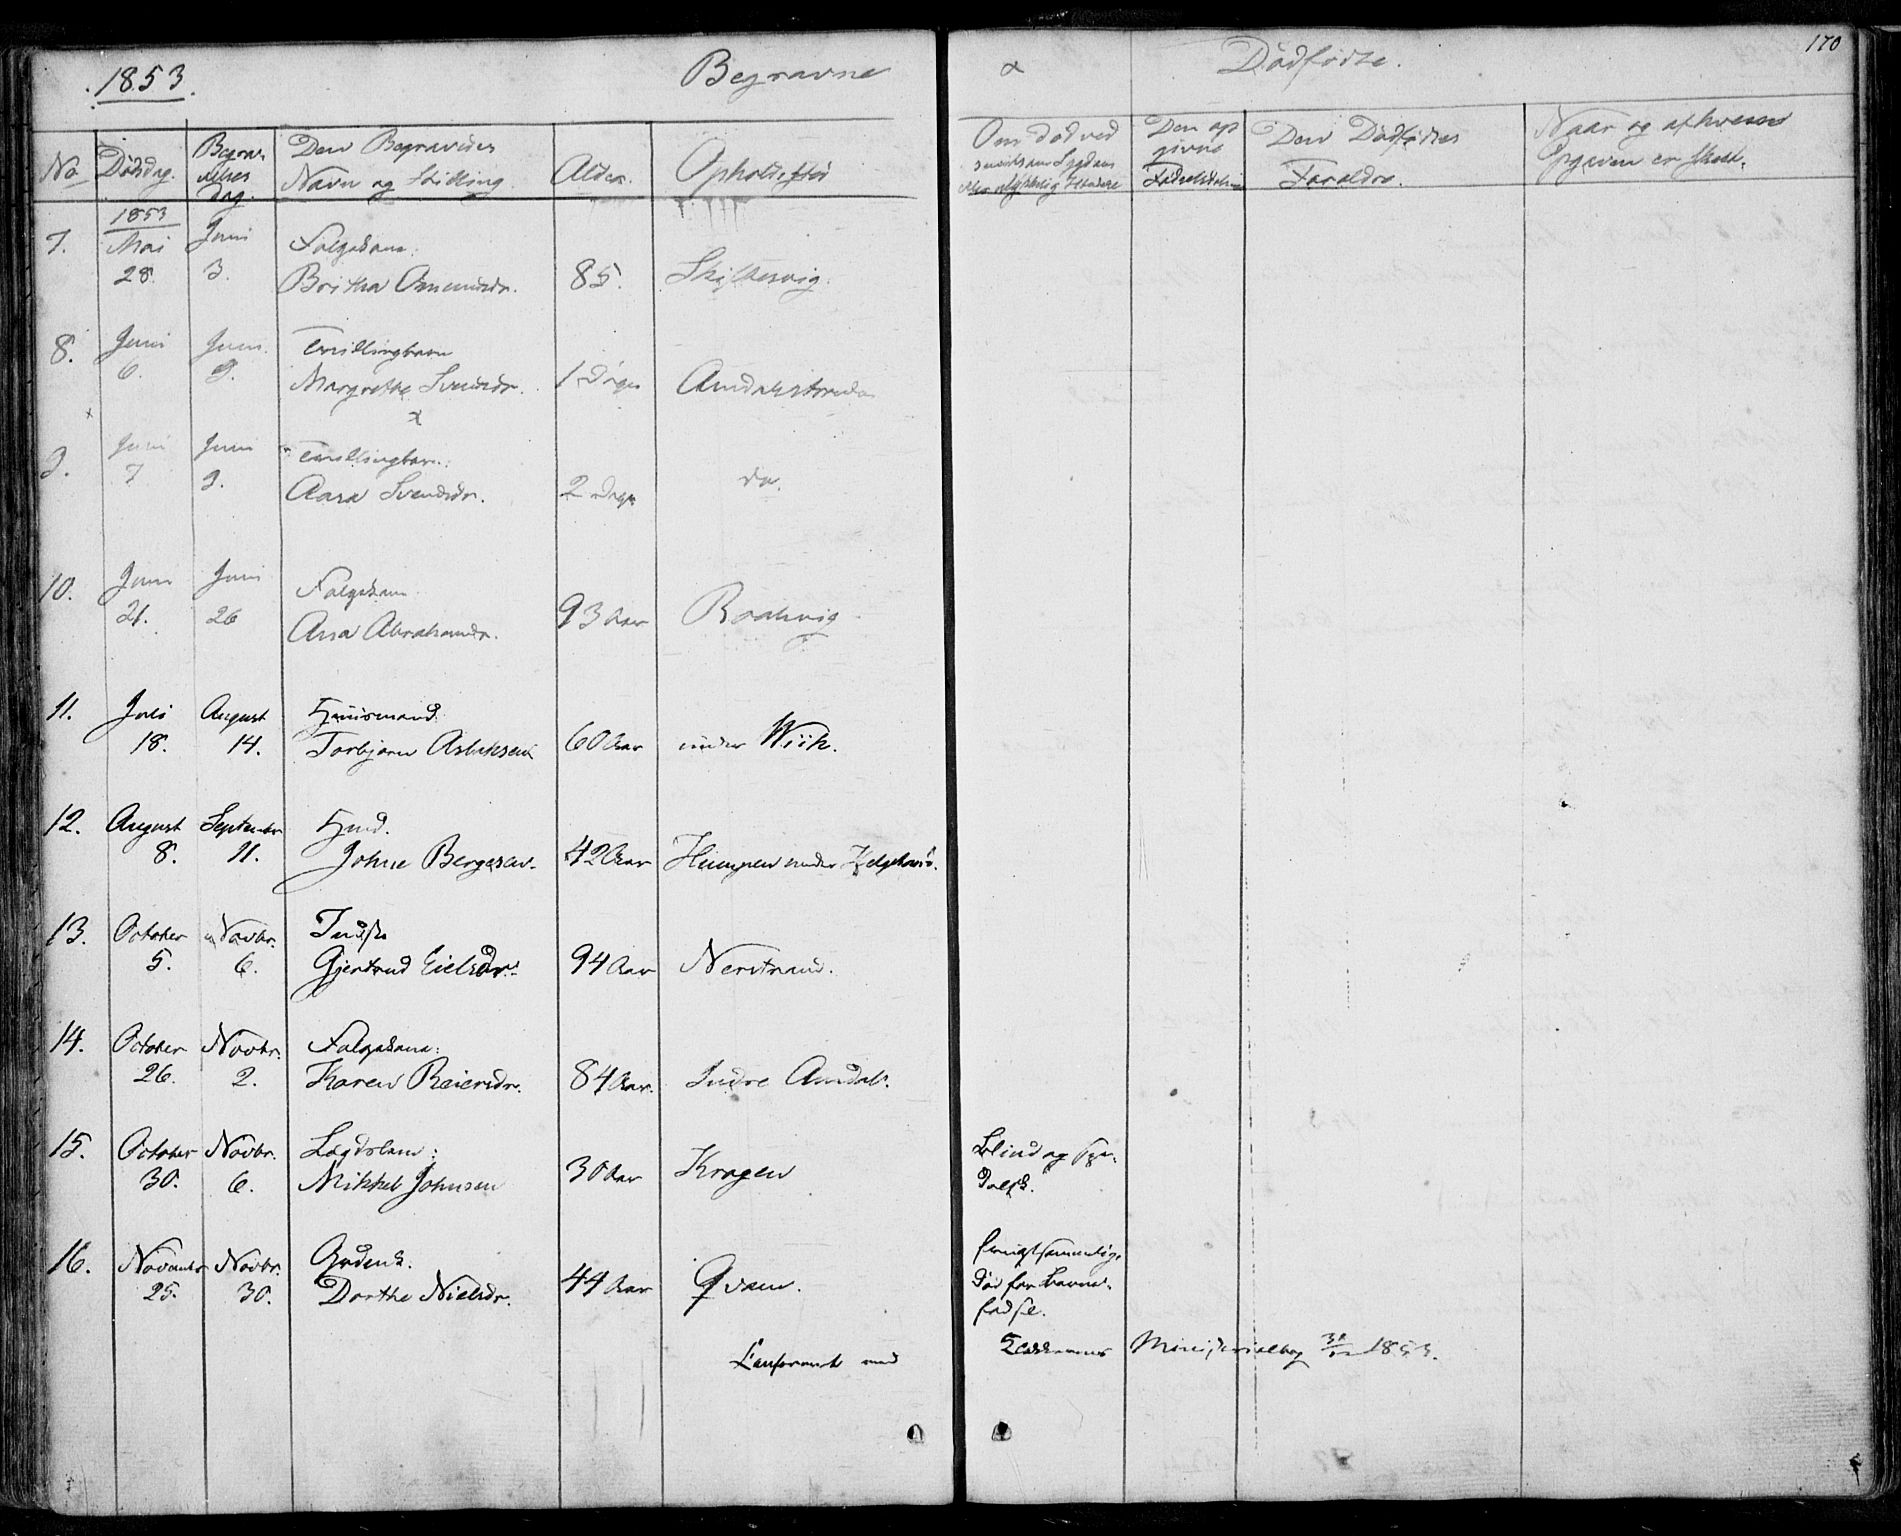 1853. Begravne & Dødfødte. 170
No Dødsdag. Begravelses Dag. Den Begravedes Navn og Stilling Alder. Opholdssted Om død ved smitsom Sygdom eller ulykkelig Hændelse Den opgivne Den Dødfødtes Forældre. Naar og af hvem Opgaven er skeet.
1853
7. Mai 28. Juni 3. Folgekone:
Britha Omundsdr. 85. Skiftesvig.
8. Juni 6. Juni 9. Tvillingbarn
Margrethe Svendsdr. 1 Dage Amdalsstranda
9. Juni 7 Juni 9. Tvillingbarn:
Aasa Svendsdr. 2 Dage do.
10. Juni 21. Juni 26 Folgekone
Ana Abrahamsdr. 93 Aar Bodnvig
11. Juli 18. August 14. Huusmand
Torbjørn Aslaksen 60 Aar under Wiik.
12. August 8. Septembr 11. Hmd.
Johne Bergesen. 42 Aar under
13. October 5. Novbr. 6. Indst
Gjertrud Eielsdr. 94 Aar Nerstrand.
14. October 26. Novbr. 2. Folgekone:
Karen Reiersdr. 84 Aar. Indre Amdal.
15. October 30. Novbr. 6. Lægdslem:
Mikkel Johnsen 30 Aar Kragen Blind og spedalsk.
16. Novembr 25. Novbr. 30. Gndensk.
Dorthe Nielsdr. 44 Aar Qvam. frugtsommelig, død før Barnefødsel.
Conformt med Ministerialbog 1853.